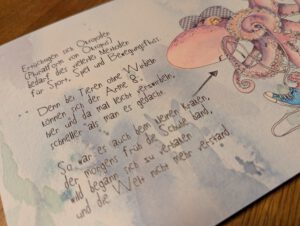 Ertüchtigen sich Oktopoden
(Pluralform von Oktopus)
bedarf dies vielerlei Methoden
für Sport, Spiel und Bewegungsfluss.
Denn bei Tieren ohne Wirbeln
können sich der Arme 8
hier und da mal leicht verzwirbeln,
schneller als man es gedacht.
So war es auch dem kleinen Kraken,
der morgens früh die Schuhe band,
wild begann sich zu verhaken
und die Welt nicht mehr verstand.